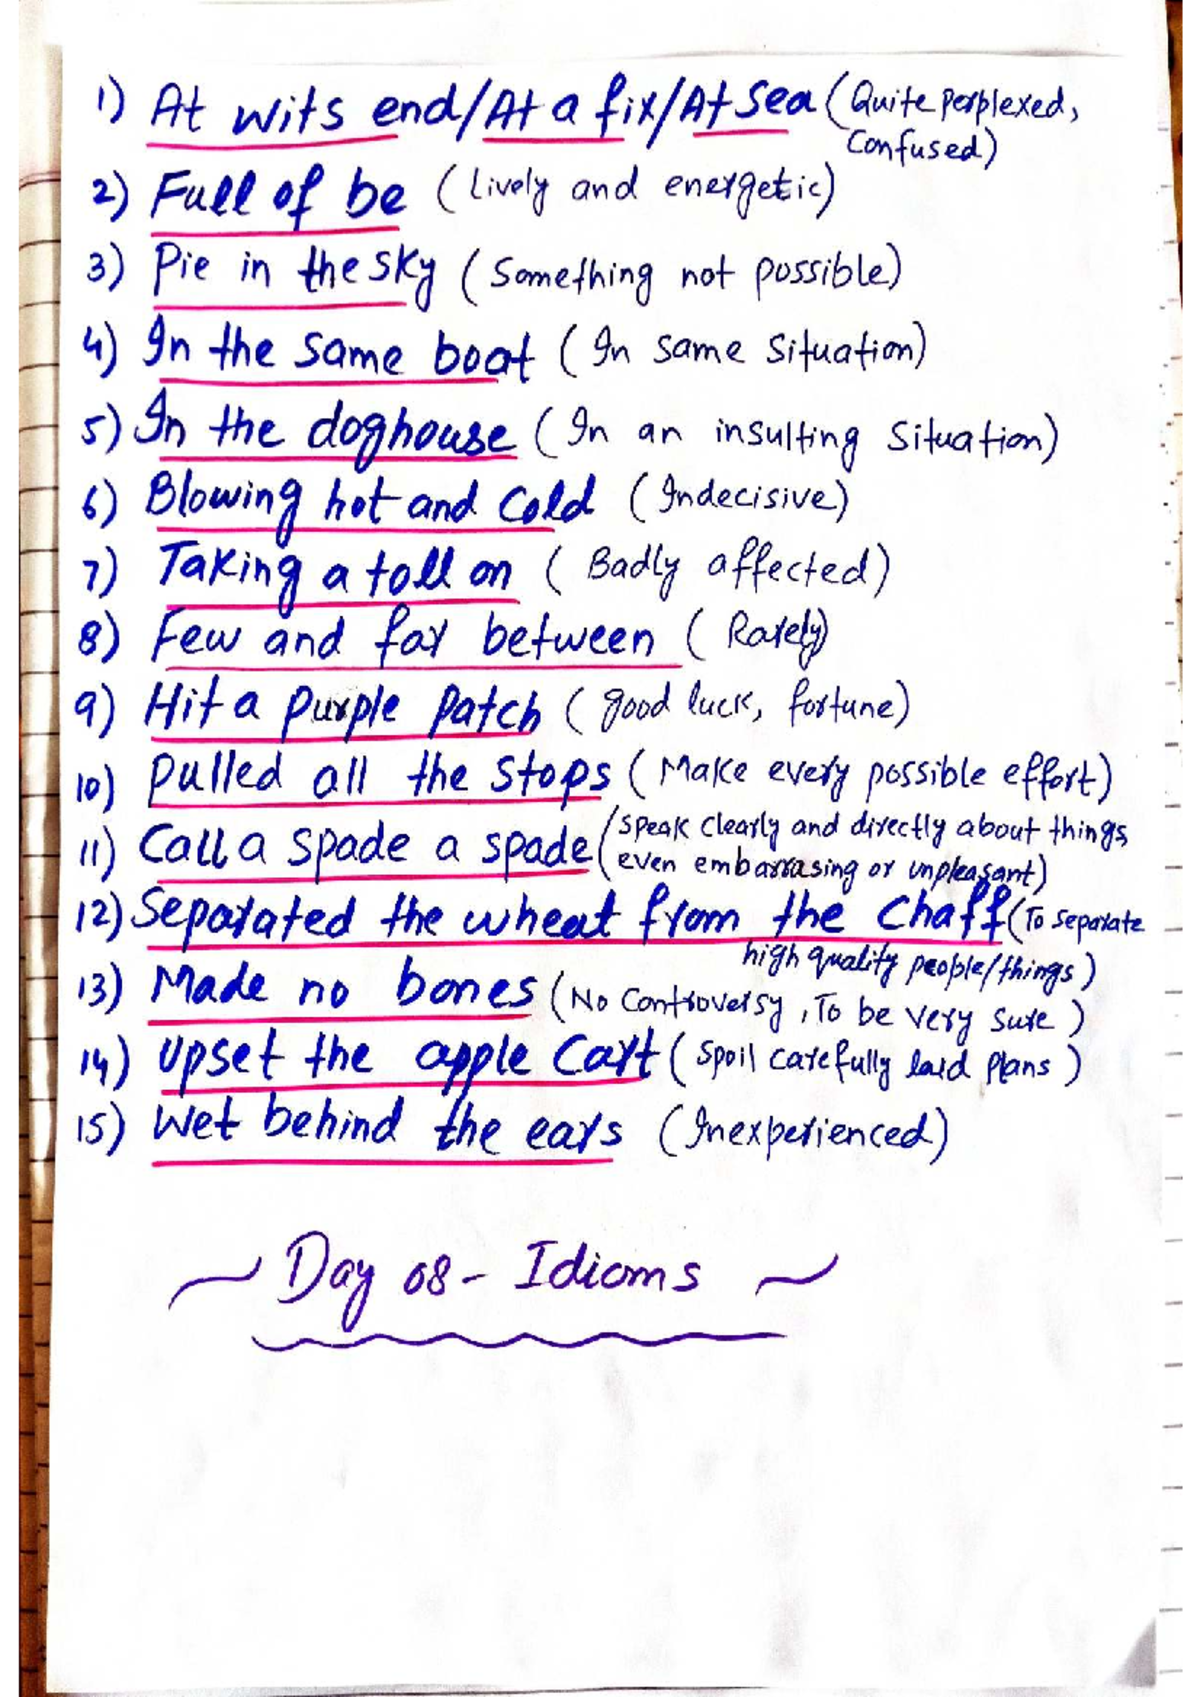 1) At wits end/At a fix/At sea (Quite perplexed,
Confused)
2) Full of be (Lively and energetic)
3) Pie in the sky (Something not possible)
4) In the same boat (In same situation)
5) In the doghouse (In an insulting situation)
6) Blowing hot and cold (Indecisive)
7) Taking a toll on (Badly affected)
8) Few and far between (Rarely)
9) Hit a purple patch (good luck, fortune)
10) Pulled all the stops (Make every possible effort)
11) Call a spade a spade (speak clearly and directly about things,
even embarrasing or unpleasant)
12) Separated the wheat from the chaff (To separate
high quality people/things)
13) Made no bones (No Controversy, To be very sure)
14) Upset the apple Cart (Spoil carefully laid plans)
15) Wet behind the ears (Inexperienced)
Day 08 - Idioms